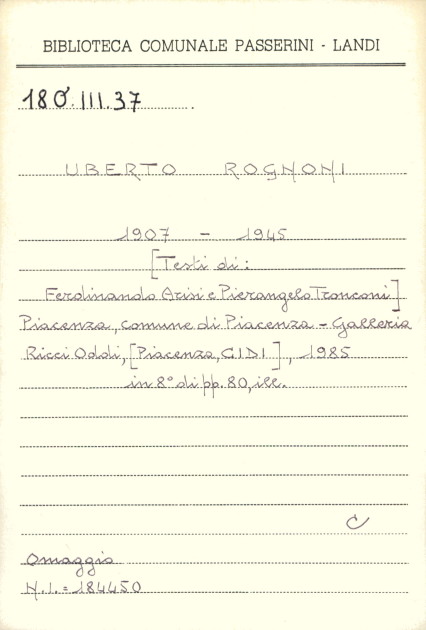 BIBLIOTECA COMUNALE PASSERINI - LANDI
180.III.37
UBERTO ROGNONI
1907 - 1945
[Testi di:
Ferdinando Arisi e Pierangelo Tronconi]
Piacenza, comune di Piacenza - Galleria
Ricci Oddi, [Piacenza, GIDI], 1985
in 8° di pp. 80, ill.
C
Omaggio
N.I. = 184450